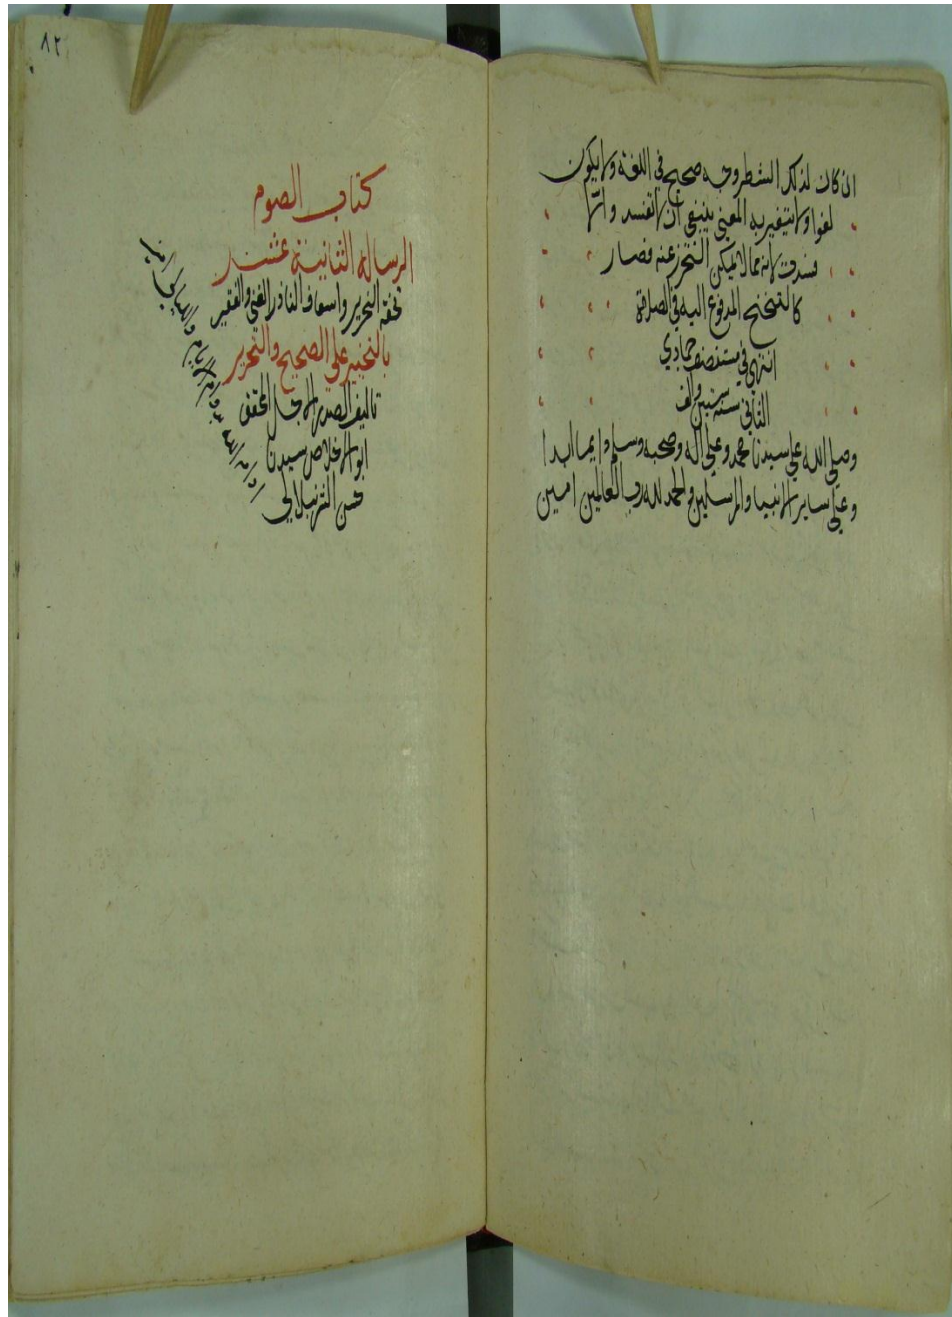 ان كان لذلك الشطر وجه صحيح في اللغة ولا يكون
لغوا ولا يتغير به المعنى ينبغي ان لا تفسد وانما
فسدت لانه مما لا يمكن التحرز عنه فصار
كالتنحنح المدفوع اليه في الصلاة
انتهى في مستنصف جمادي
الثاني سنة ستين والف
وصلى الله علي سيدنا محمد وعلي اله وصحبه وسلم دايما ابدا
وعلي ساير الانبيا والمرسلين والحمد لله رب العالمين امين
٨٢
كتاب الصوم
الرسالة الثانية عشر
تحفة التحرير واسعاف الناذر الغني والفقير
بالتخيير علي الصحيح والتحرير
تاليف الصدر الاجل المحقق
ابو الاخلاص سيدنا
حسن الشرنبلالي